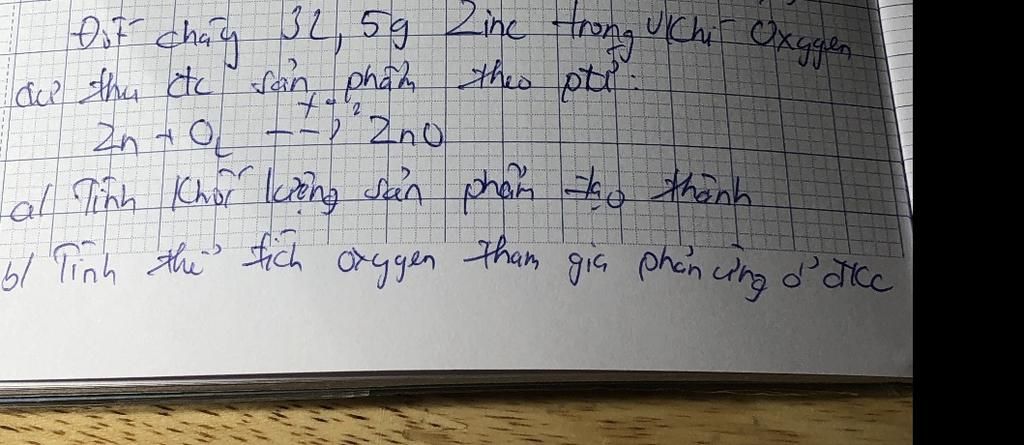 Đốt cháy 32,5g Zinc trong khí Oxygen
thu đc sản phẩm theo ptử:
Zn + O2 --> ZnO
a/ Tính khối lượng sản phẩm tạo thành
b/ Tính thể tích oxygen tham gia phản ứng ở đkc